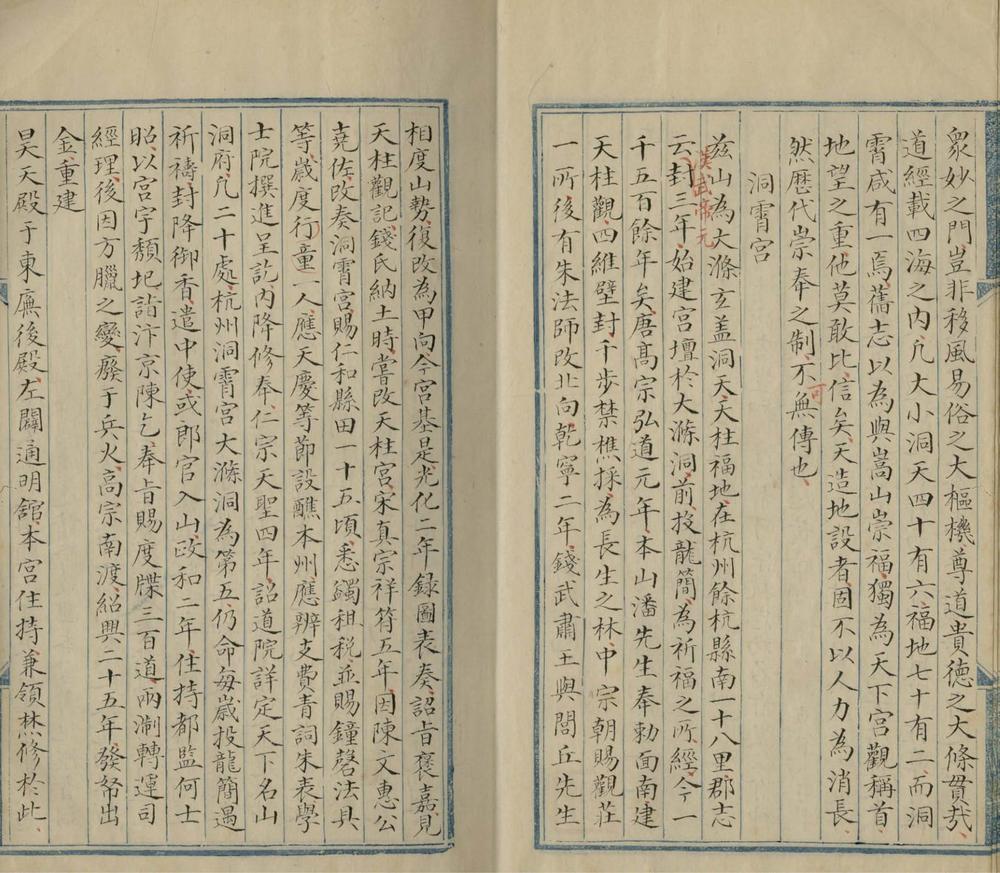 衆妙之門豈非移風易俗之大樞機尊道貴德之大條貫哉
道經載四海之內凡大小洞天四十有六福地七十有二而洞
霄咸有一焉舊志以為與嵩山崇福獨為天下宮觀稱首
地望之重他莫敢比信矣天造地設者固不以人力為消長
然歷代崇奉之制不可無傳也
洞霄宮
茲山為大滌玄盖洞天天柱福地在杭州餘杭縣南一十八里郡志
云漢武帝元封三年始建宮壇於大滌洞前投龍簡為祈福之所經今一
千五百餘年矣唐高宗弘道元年本山潘先生奉勑面南建
天柱觀四維壁封千步禁樵採為長生之林中宗朝賜觀莊
一所後有朱法師改北向乾寧二年錢武肅王與閭丘先生
相度山勢復改為甲向今宮基是光化二年錄圖表奏詔旨褒嘉見
天柱觀記錢氏納土時嘗改天柱宮宋真宗祥符五年因陳文惠公
堯佐改奏洞霄宮賜仁和縣田一十五頃悉蠲租稅並賜鐘磬法具
等歲度行童一人應天慶等節設醮本州應辦支費青詞朱表學
士院撰進呈訖內降修奉仁宗天聖四年詔道院詳定天下名山
洞府凡二十處杭州洞霄宮大滌洞為第五仍命每歲投龍簡遇
祈禱封降御香遣中使或郎官入山政和二年住持都監何士
昭以宮宇頹圯詣汴京陳乞奉旨賜度牒三百道兩淛轉運司
經理後因方臘之變癈于兵火高宗南渡紹興二十五年發帑出
金重建
昊天殿于東廡後殿左闢通明舘本宮住持兼領焚修於此